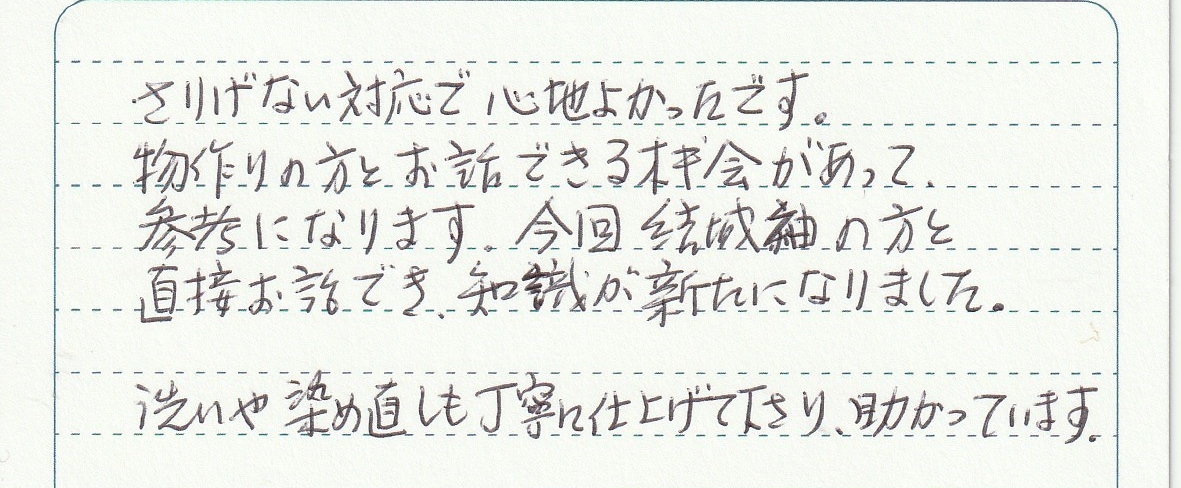 さりげない対応で心地よかったです。
物作りの方とお話できる機会があって、
参考になります。今回結城紬の方と
直接お話でき、知識が新たになりました。
洗いや染め直しも丁寧に仕上げて下さり、助かっています。